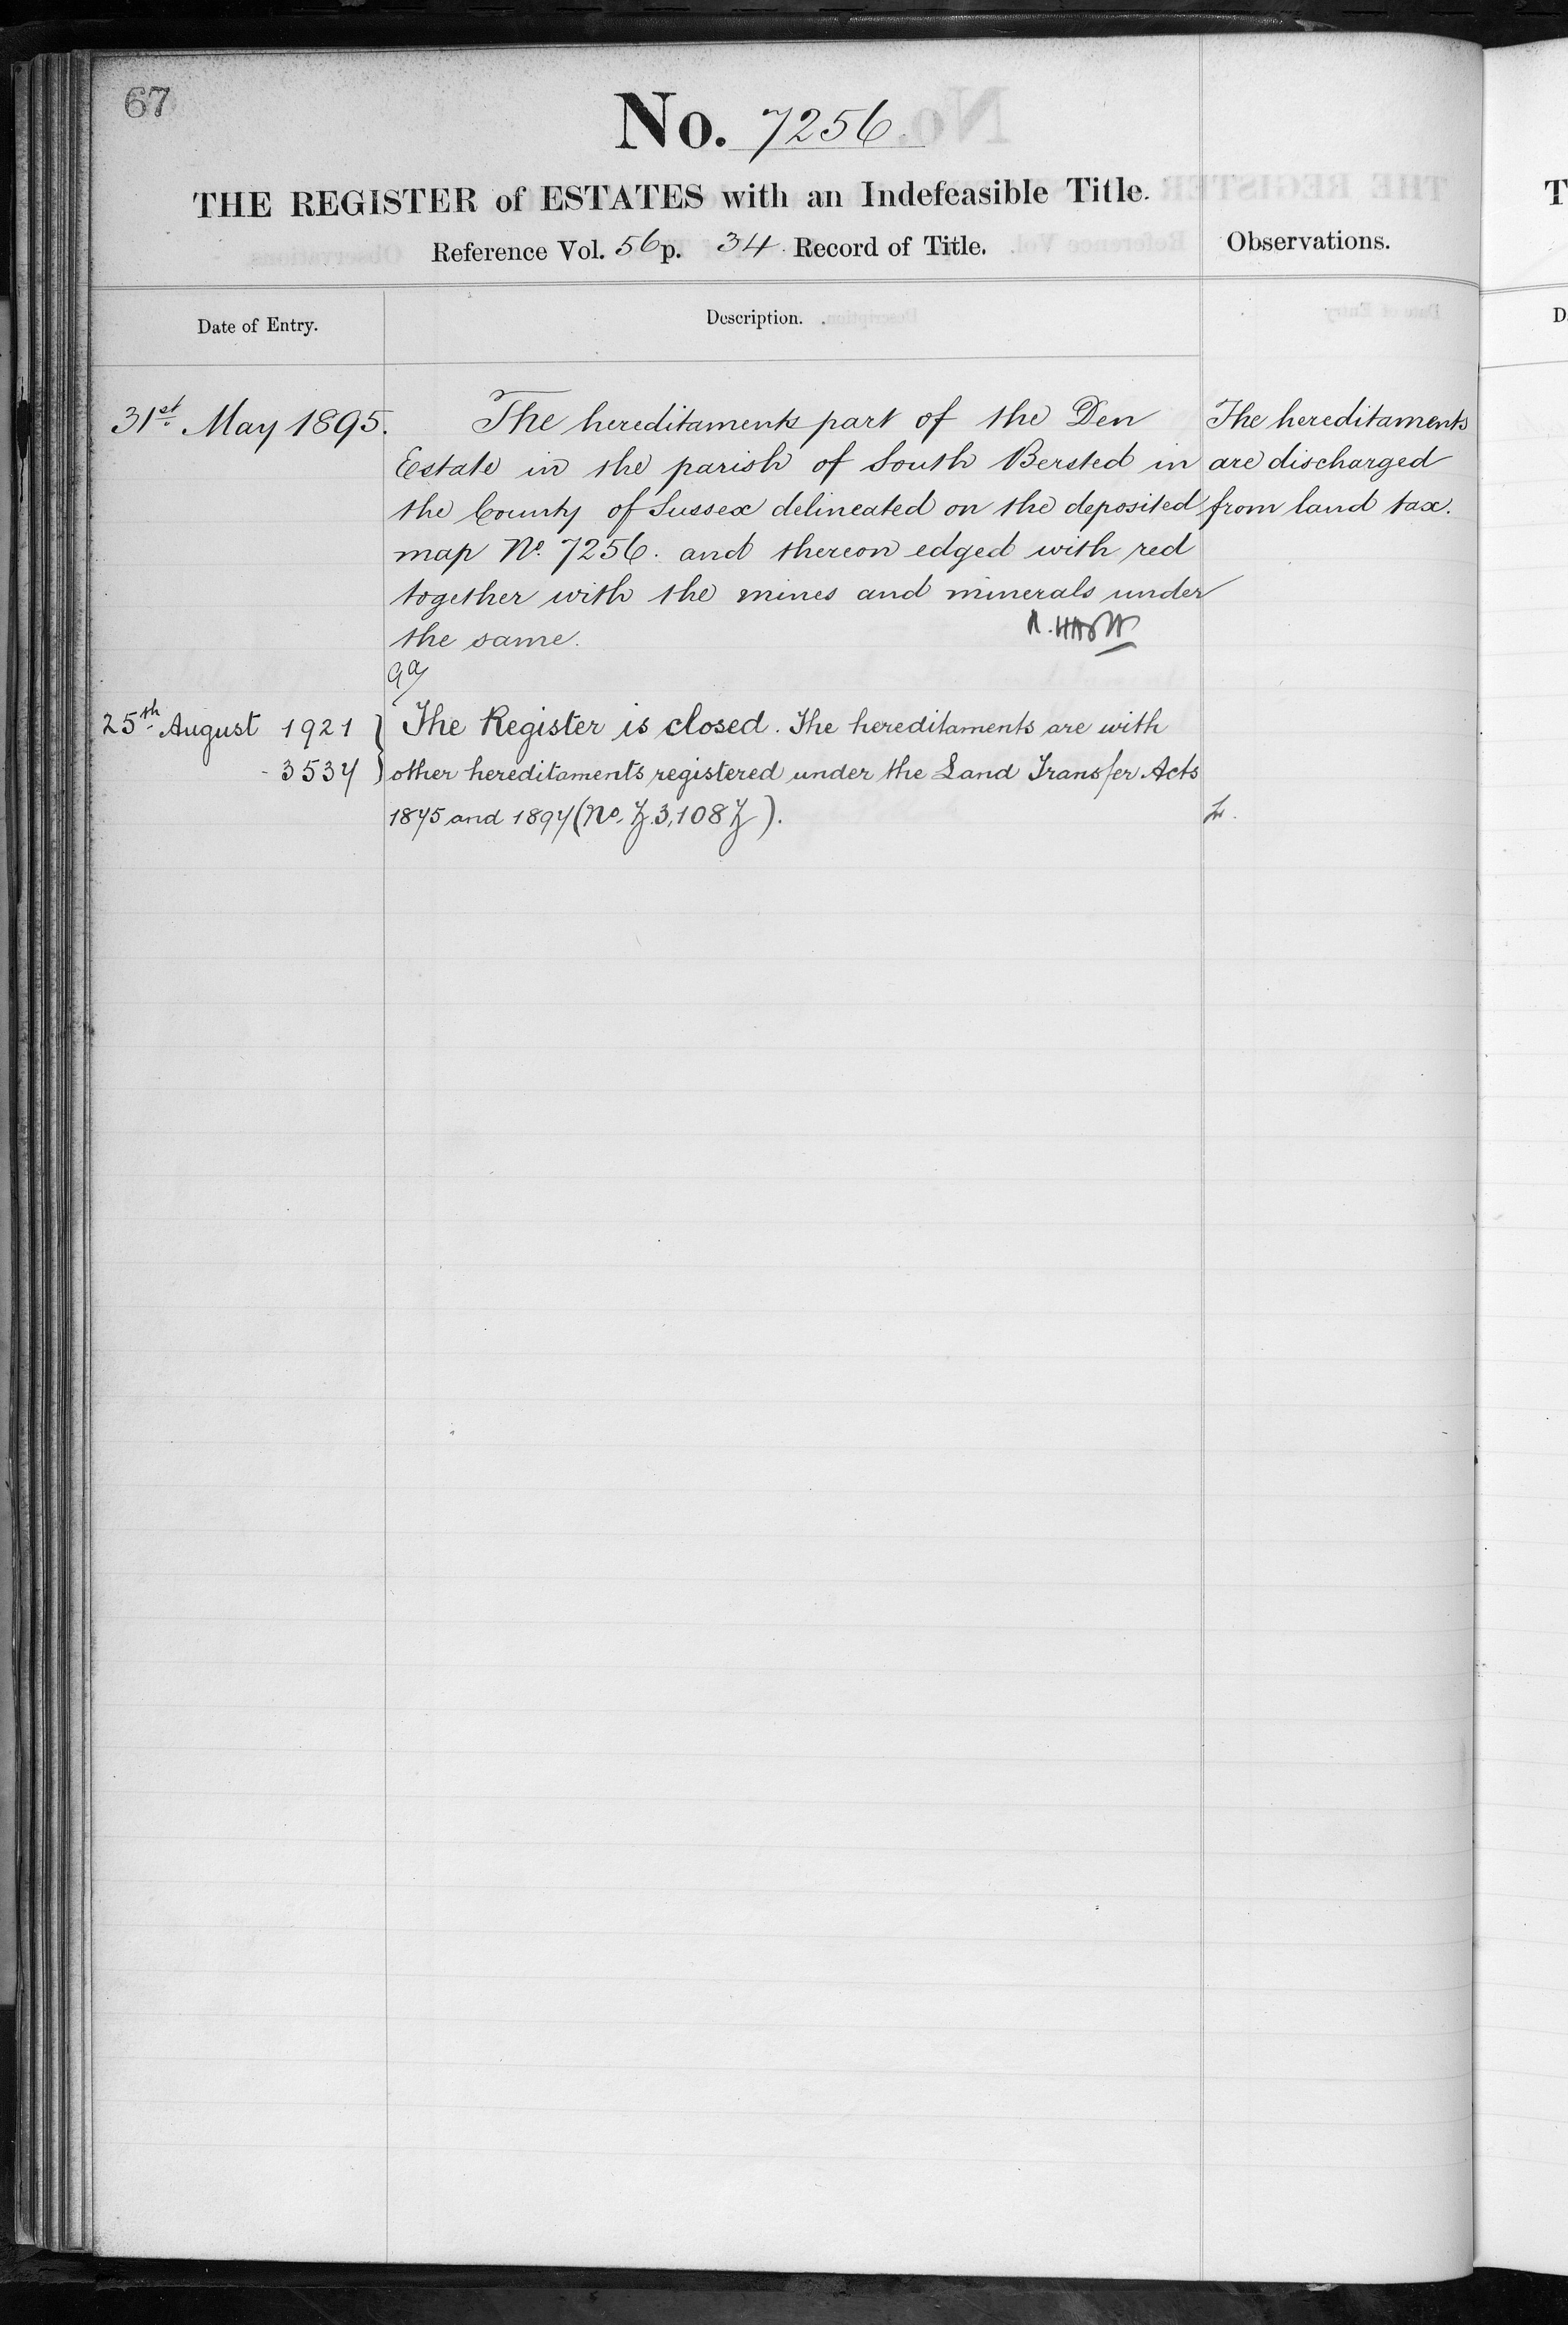 67
No. 7256
THE REGISTER of ESTATES with an Indefeasible Title.
Reference Vol. 56 p. 34 Record of Title.
Observations.
Date of Entry.
Description.
31st May 1895.
The hereditaments part of the Den
Estate in the parish of South Bersted in
the County of Sussex delineated on the deposited
map No. 7256. and thereon edged with red
together with the mines and minerals under
the same.
The hereditaments
are discharged
from land tax.
25th August 1921
3534
The Register is closed. The hereditaments are with
other hereditaments registered under the Land Transfer Acts
1875 and 1897 (No. Z.3,108 Z).